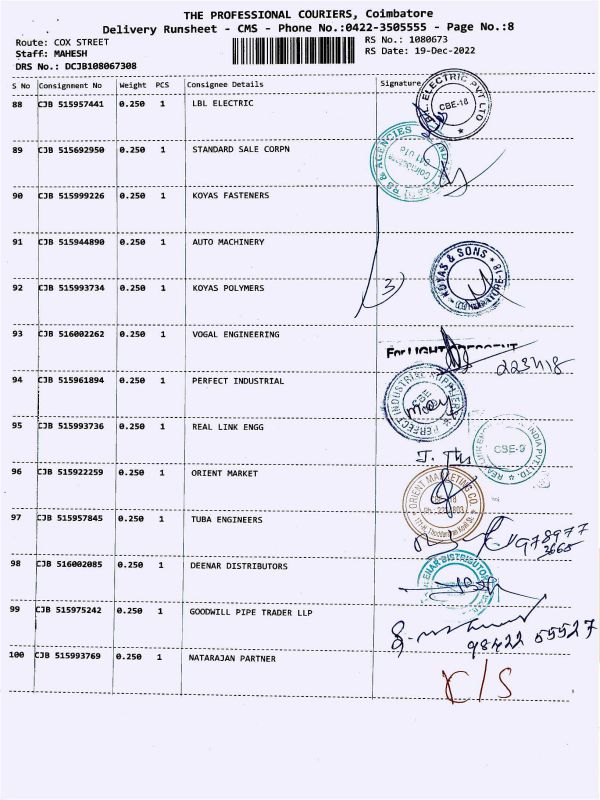 THE PROFESSIONAL COURIERS, Coimbatore
Delivery Runsheet - CMS - Phone No.:0422-3505555 - Page No.:8
Route: COX STREET
RS No.: 1080673
Staff: MAHESH
RS Date: 19-Dec-2022
DRS No.: DCJB108067308
S No Consignment No Weight PCS Consignee Details Signature
88 CJB 515957441 0.250 1 LBL ELECTRIC
ELECTRIC PVT LTD
CBE-18
89 CJB 515692950 0.250 1 STANDARD SALE CORPN
& AGENCIES
90 CJB 515999226 0.250 1 KOYAS FASTENERS
91 CJB 515944890 0.250 1 AUTO MACHINERY
KOYAS & SONS
92 CJB 515993734 0.250 1 KOYAS POLYMERS
3
93 CJB 516002262 0.250 1 VOGAL ENGINEERING
For LIGHT
94 CJB 515961894 0.250 1 PERFECT INDUSTRIAL
PERFECT INDUSTRIAL SUPPLIER
CBE
95 CJB 515993736 0.250 1 REAL LINK ENGG
INDIA PVT LTD
CBE-9
96 CJB 515922259 0.250 1 ORIENT MARKET
ORIENT MARKETING CO
97 CJB 515957845 0.250 1 TUBA ENGINEERS
978977
3668
98 CJB 516002085 0.250 1 DEENAR DISTRIBUTORS
ENAR DISTRIBUTOR
99 CJB 515975242 0.250 1 GOODWILL PIPE TRADER LLP
98422 55527
100 CJB 515993769 0.250 1 NATARAJAN PARTNER
C/S